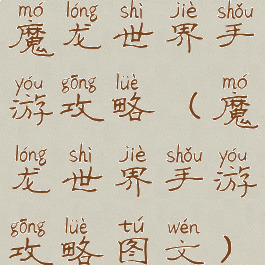 mó lóng shì jiè shǒu
魔龙世界手
yóu gōng lüè mó
游攻略（魔
lóng shì jiè shǒu yóu
龙世界手游
gōng lüè tú wén
攻略图文）